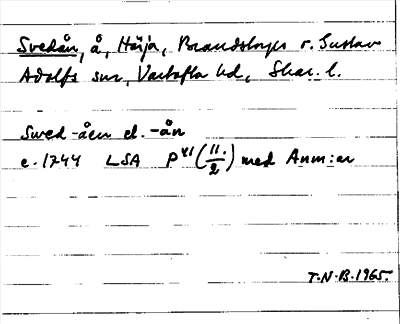 Svedån, å, Härja, Brandstorps o. Gustav
Adolfs snr, Vartofta hd, Skar. l.
Swed-åen el. -ån
c. 1744 LSA P VI (11./2) med Anm:ar
T.N-B. 1965.